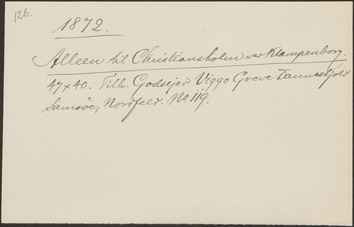 126.
1872.
Alleen til Christiansholm ved Klampenborg.
47x40. Till. Godsejer Viggo Greve Danneskjold
Samsöe, Nordfeld. No 119.